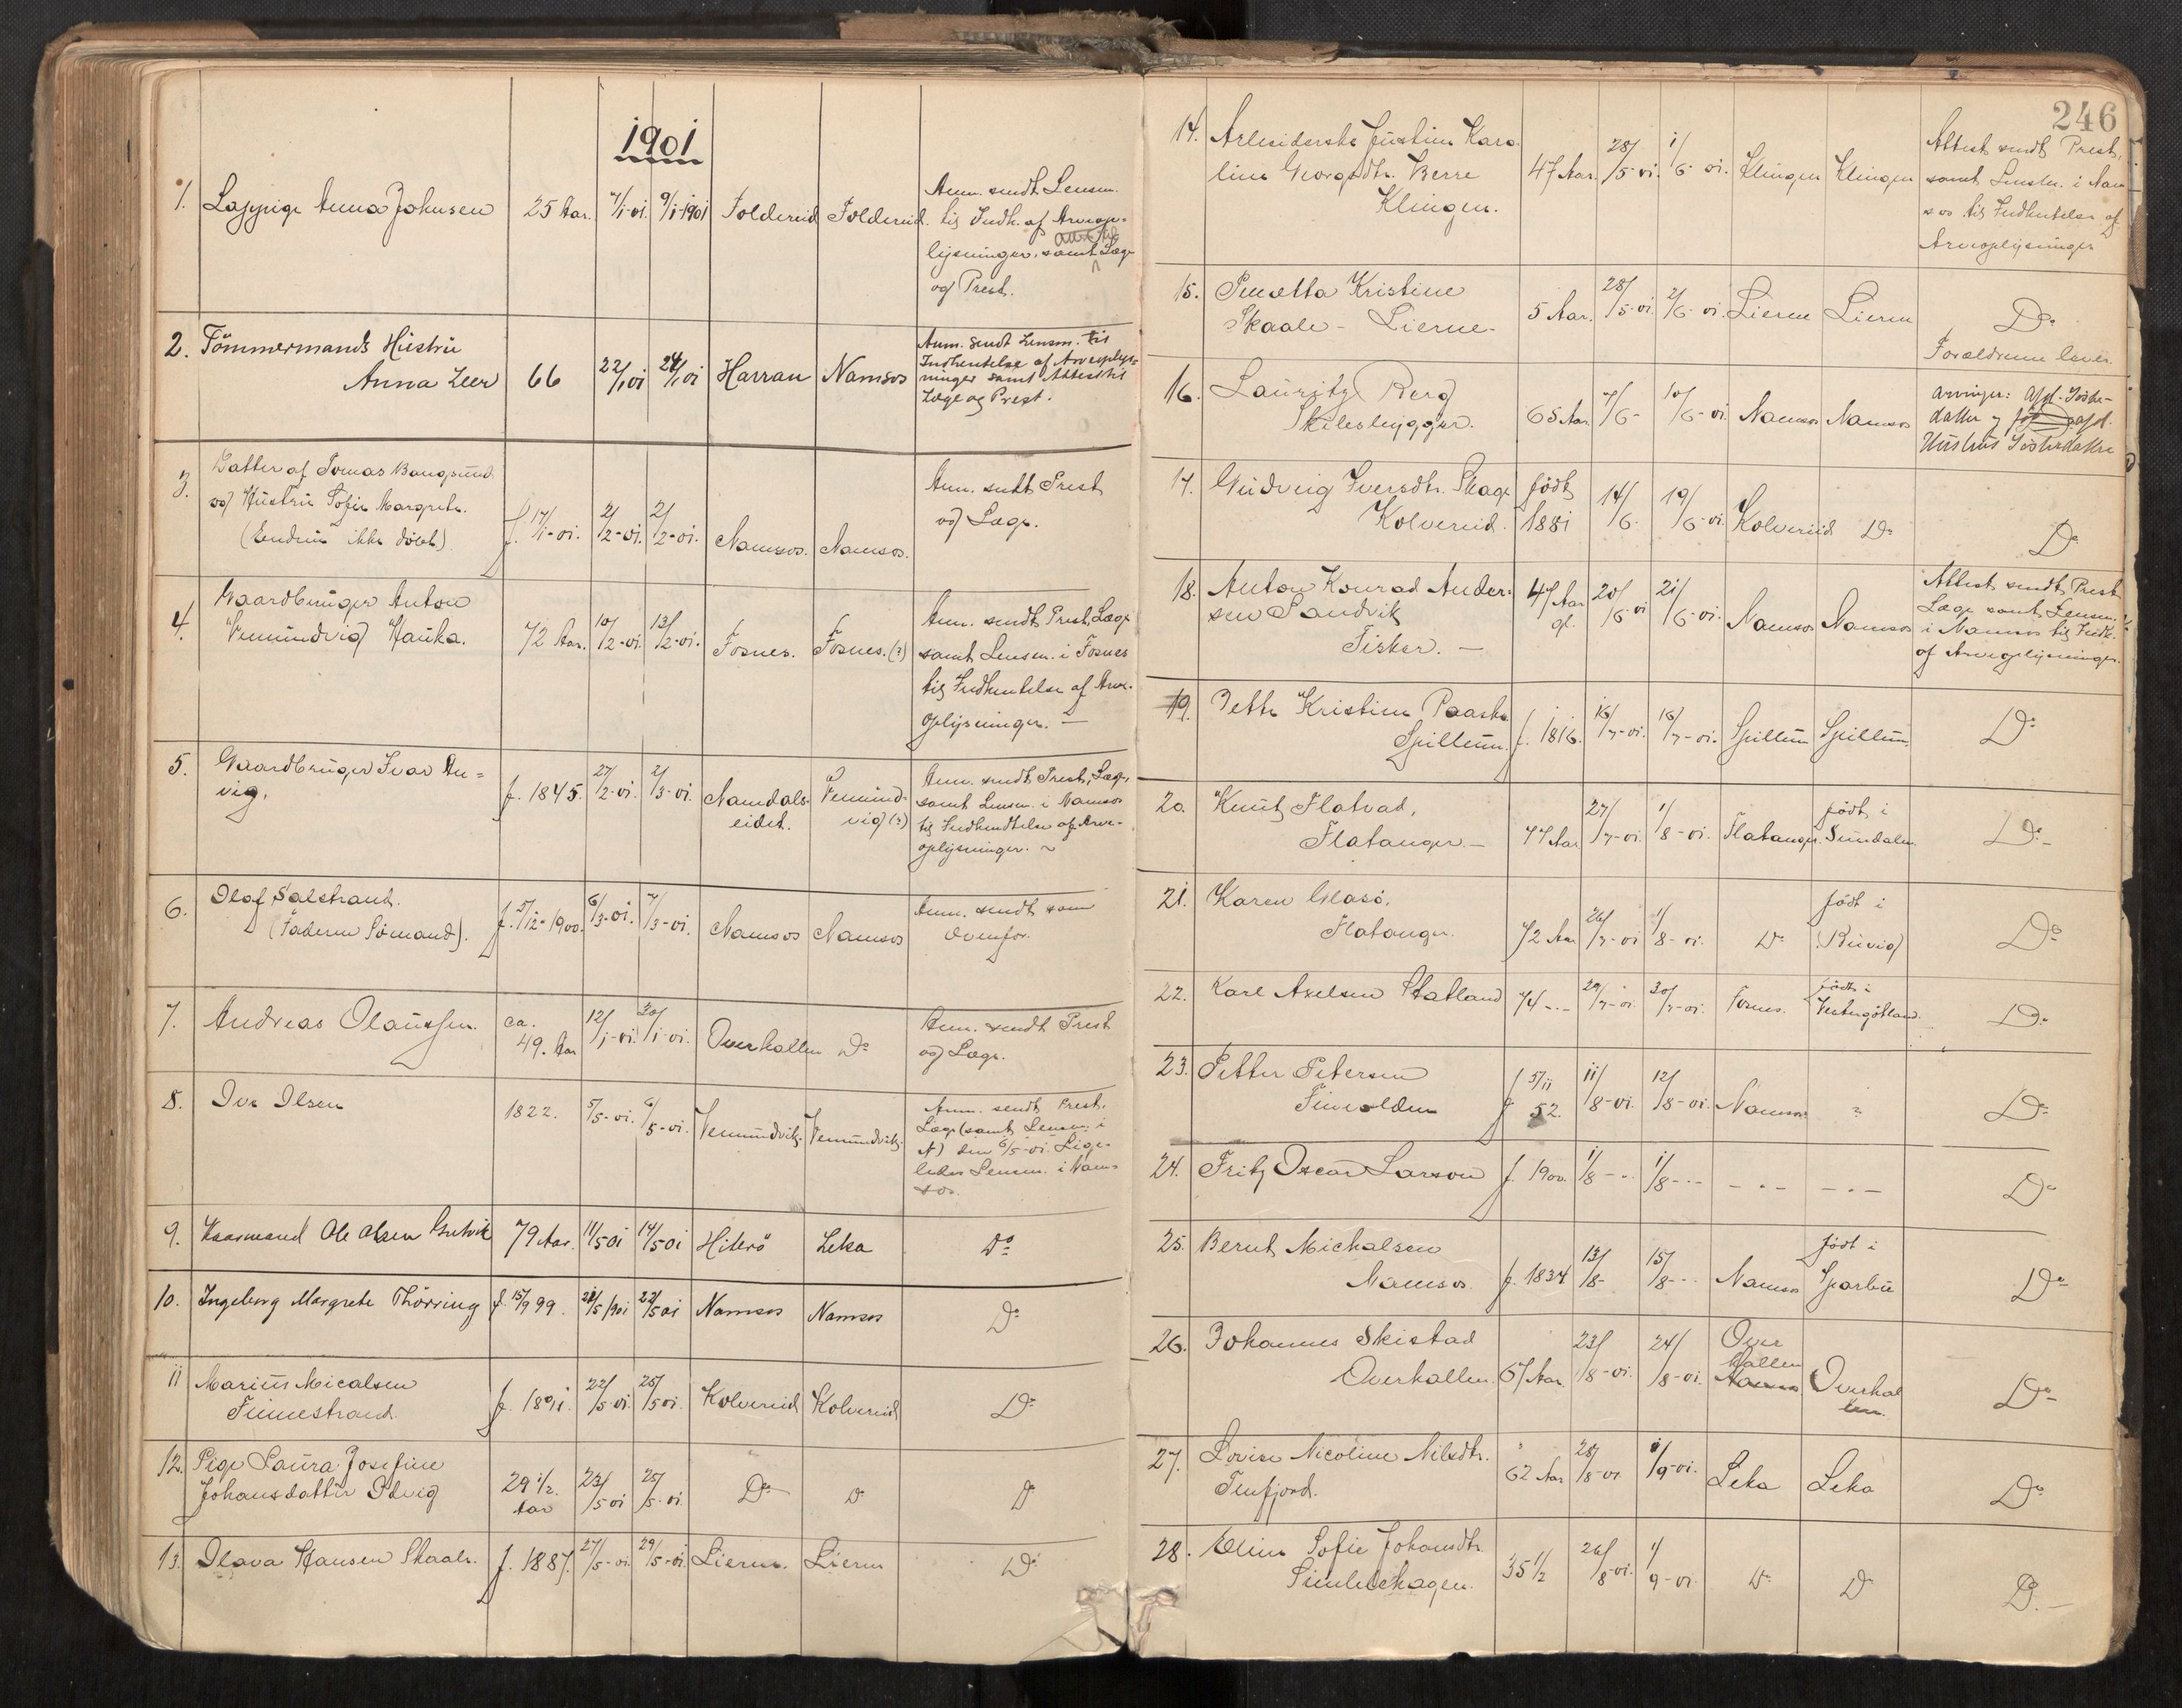 1901
1. Lappige Anna Johnsen 25 Aar. 7/1-01. 9/1-1901 Foldereid Foldereid. Anm. sendt Lensm.
til Indh. af Arveop-
lysninger, samt Læge
og Prest.
2. Tömmermands Hustru
Anna Leer 66 22/1 01 24/1 01 Harran Namsos Anm. sendt Lensm. til
Indhentelse af Arveoplys-
ninger samt Attest til
Læge og Prest.
3. Datter af Tomas Bangsund
og Hustru Sofie Margrete.
(Endnu ikke döbt) f. 17/1-01. 2/2-01. 2/2-01. Namsos. Namsos. Anm. sendt Prest
og Læge.
4. Gaardbruger Anton
Vemundvig Hauka. 72 Aar. 10/2-01. 13/2-01. Fosnes. Fosnes. (?) Anm. sendt Prest, Læge
samt Lensm. i Fosnes
til Indhentelse af Arve-
oplysninger. —
5. Gaardbruger Ivar Au=
vig. f. 1845. 27/2-01. 2/3-01. Namdals-
eidet. Vemund-
vig (?) Anm. sendt Prest, Læge,
samt Lensm. i Namsos
til Indhendtelse af Arve-
oplysninger.
6. Olaf Salstrand.
(Faderen Sömand). f. 5/12-1900. 6/3-01. 7/3-01. Namsos Namsos Anm. sendt som
ovenfor.
7. Andreas Olaussen. ca.
49. Aar 12/1-01. 30/1-01. Overhallen Do Anm. sendt Prest
og Læge.
8. Ove Olsen 1822. 5/5-01. 6/5-01. Vemundvik. Vemundvik. Anm. sendt Prest,
Læge (samt Lensm. i
N) den 6/5-01. Lige-
ledes Lensm. i Nam-
sos.
9. Kaarmand Ole Olsen 79 Aar. 11/5 01 14/5 01 Hiterö Leka Do
10. Ingeborg Margrete Thörring f. 15/9 99. 21/5 1901 22/5 01 Namsos Namsos Do
11 Marius Micalsen
Finnestrand. f. 1891. 22/5-01. 25/5 01. Kolvereid Kolvereid Do
12. Pige Laura Josefine
Johansdatter Odvig 29 1/2.
Aar 23/5 01 25/5-01. Do Do Do
13. Olava Hansen Skaale. f. 1887. 27/5-01. 29/5-01. Lierne. Lierne Do
246
14. Arbeiderske Justine Karo-
line Georgsdtr. Berre
Klingen. 47 Aar. 28/5-01. 1/6-01. Klingen Klingen Attest sendt Prest,
samt Lensm. i Nam
sos til Indhentelse af
Arveoplysninger
15. Penetta Kristine
Skaale - Lierne - 5 Aar. 28/5-01. 2/6-01. Lierne Lierne Do
Forældrene lever.
16. Lauritz Berg
Skibsbygger. 65 Aar 7/6- 10/6-01. Namsos Namsos Arvinger: Afd. Söster-
datter og afd.
Hustrus Sösterdatter
17. Gudveig Iversdtr. Skage
Kolvereid. födt
1881 14/6- 19/6-01. Kolvereid Do Do
18. Anton Konrad Ander-
sen Sandvik
Fisker. — 47 Aar
gl. 20/6-01 21/6-01. Namsos Namsos Attest sendt Prest
Læge samt Lensm.
i Namsos til Indh.
af Arveoplysninger.
19. Jette Kristine Paaske
Spillum. f. 1816. 16/7-01. 16/7-01. Spillum Spillum. Do
20. Knut Flatvad,
Flatanger. — 77 Aar 27/7-01. 1/8-01. Flatanger. födt i
Sundalen. Do
21. Karen Glasö,
Flatanger. 72 Aar 26/7-01 1/8-01. Do födt i
(Buvig) Do
22. Karl Axelsen Statland 74 -"- 29/7-01. 30/7-01. Fosnes. födt i
Vestergötland. Do
23. Petter Petersen
Finvolden f 5/11
52. 11/8-01. 12/8-01. Namsos ? Do
24. Fritz Oscar Larson f. 1900. 1/8 -"- 1/8 -"- -"- -"- Do
25. Bernt Michalsen
Namsos. f. 1834 13/8- 15/8-" Namsos födt i
Sparbu Do
26. Johannes Skistad
Overhallen. 67 Aar. 23/8-01. 24/8-01. Over
hallen Overhal
len. Do
27. Lovise Nicoline Nilsdtr.
Tenfjord. 62 Aar 28/8-01. 1/9-01. Leka Leka Do
28. Eline Sofie Johansdtr.
Simlehagen. 35 1/2 26/8-01. 1/9-01. Do Do Do